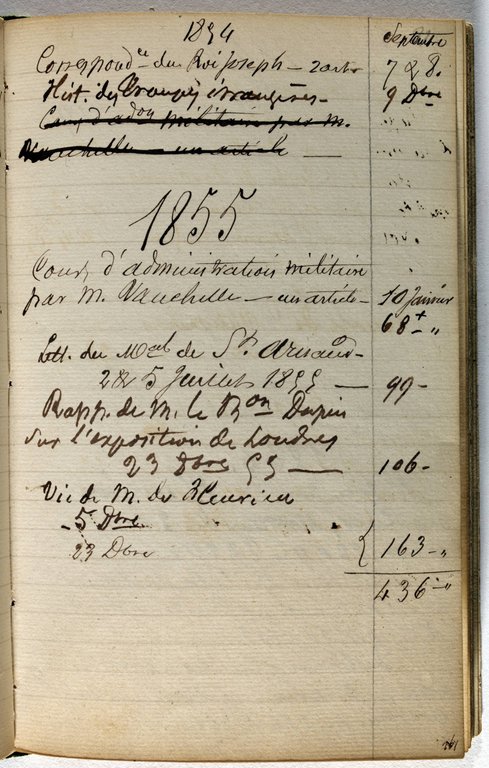 1854
Septembre
Correspond.ce du Roi Joseph – 2 arts 7 & 8.
Hist. des Troupes étrangères – 9 Dbre
Cours d'adon militaire par M.
Vauchelle – un article —
1855
Cours d'administration militaire
par M. Vauchelle – un article – 10 Janvier
68 – "
Lett. du Mal de St. Arnaud –
2 & 5 Juillet 1855 — 99 –
Rapp. de M. le Bon Dupin
sur l'exposition de Londres
23 Dbre 55 — 106 –
Vie de M. de Fleurieu
– 5 Dbre
23 Dbre { 163 – "
436 – "